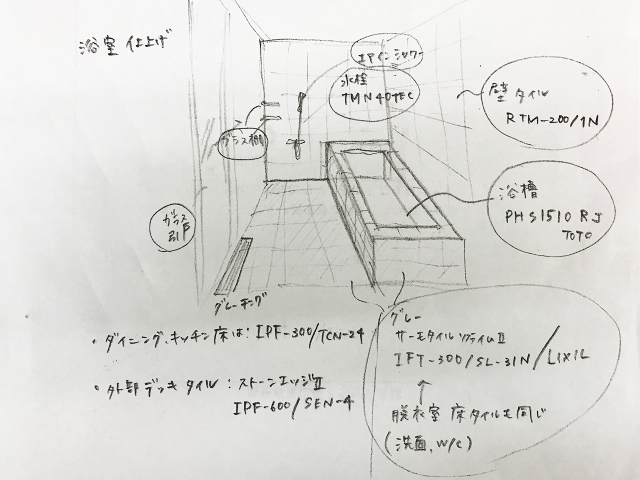 浴室 仕上げ
エアインシャワー
水栓
TMN40TEC
ガラス棚
壁タイル
RTM-200/1N
浴槽
PHS1510RJ
TOTO
ガラス
引戸
グレーチング
・ダイニング、キッチン床は:IPF-300/TCN-24
・外部デッキタイル:ストーンエッジⅡ
IPF-600/SEN-4
グレー
サーモタイル ソライムⅡ
IFT-300/SL-31N/LIXIL
↑
脱衣室 床タイルも同じ
(洗面、W/C)